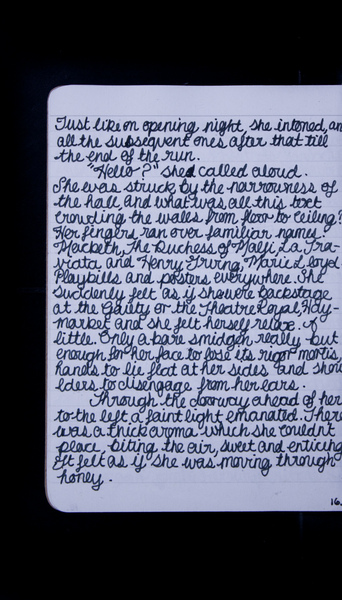 Just like on opening night, she intoned, an
all the subsequent ones after that till
the end of the run.
"Hello?" she called aloud.
She was struck by the narrowness of
the hall, and what was all this text
crowding the walls from floor to ceiling?
Her fingers ran over familiar names.
Macbeth, The Duchess of Malfi, La Tra-
viata, and Henry Irving, Marie Lloyd
Playbills and posters everywhere. She
suddenly felt as if she were backstage
at the Gaiety or the Theatre Royal, Hay-
market and she felt herself relax. A
little. Only a bare smidgen, really but
enough for her face to lose its rigor mortis,
hands to lie flat at her sides and shou
lders to disengage from her ears.
Through the doorway ahead of her
to the left a faint light emanated. There
was a thick aroma which she couldn't
place, biting the air, sweet and enticing
It felt as if she was moving through
honey.
16.